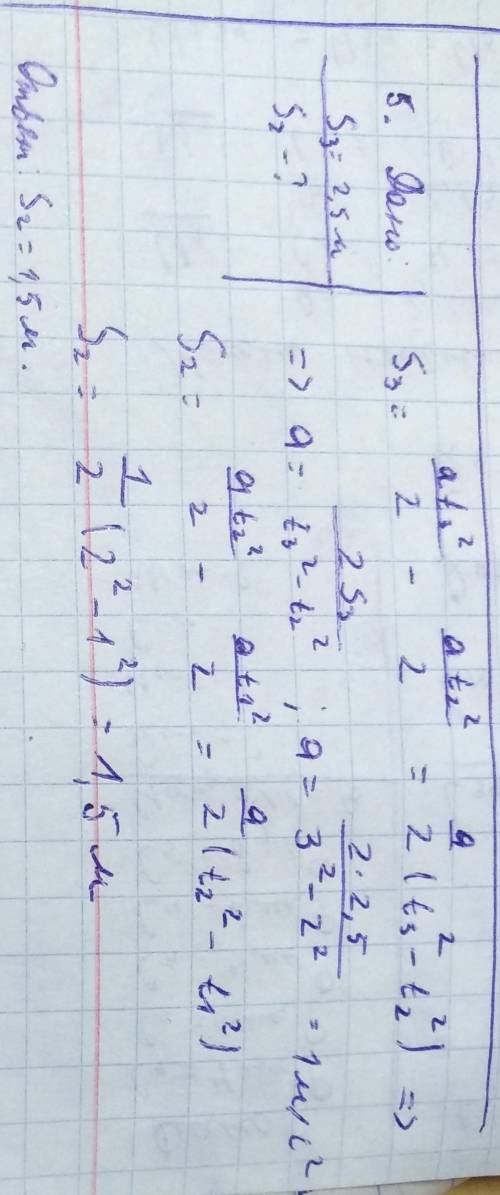 5. Дано:
S₃ = 2,5 м
S₂ - ?
S₃ = at₃²/2 - at₂²/2 = a/2 (t₃² - t₂²) =>
=> a = 2S₃/(t₃² - t₂²) ; a = 2·2,5/(3² - 2²) = 1 м/с²
S₂ = at₂²/2 - at₁²/2 = a/2 (t₂² - t₁²)
S₂ = 1/2 (2² - 1²) = 1,5 м
Ответ: S₂ = 1,5 м.